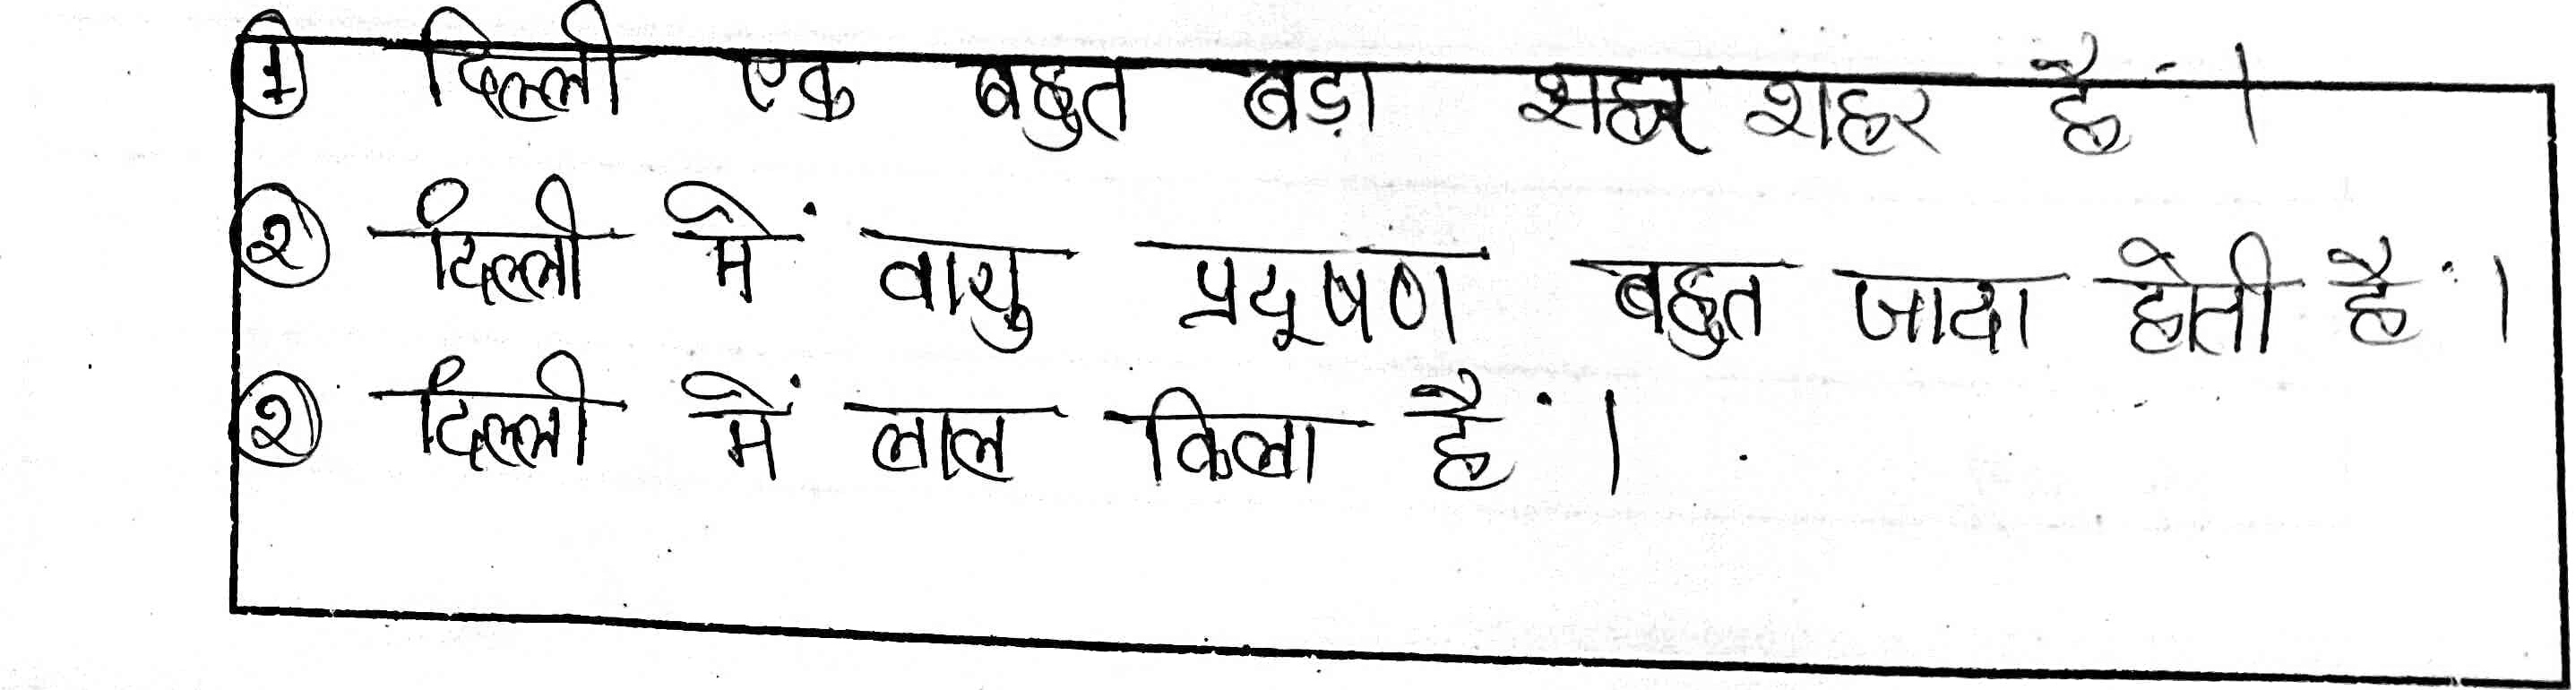 ① दिल्ली एक बहुत बड़ा शहर हैं ।
② दिल्ली में वायु प्रदूषण बहुत जादा होती हैं ।
② दिल्ली में लाल किला हैं ।